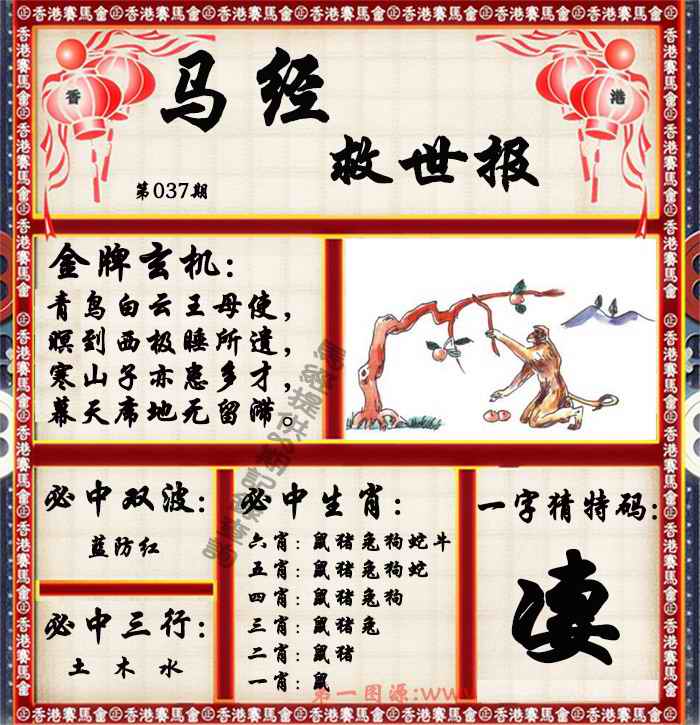 香港賽馬會
香
港
马经
救世报
第037期
金牌玄机:
青鸟白云王母使,
暝到西极睡所遗,
寒山子亦患多才,
幕天席地无留滞。
必中双波:
蓝防红
必中三行:
土 木 水
必中生肖:
六肖: 鼠猪兔狗蛇牛
五肖: 鼠猪兔狗蛇
四肖: 鼠猪兔狗
三肖: 鼠猪兔
二肖: 鼠猪
一肖: 鼠
一字猜特码:
凄
第一图源:www